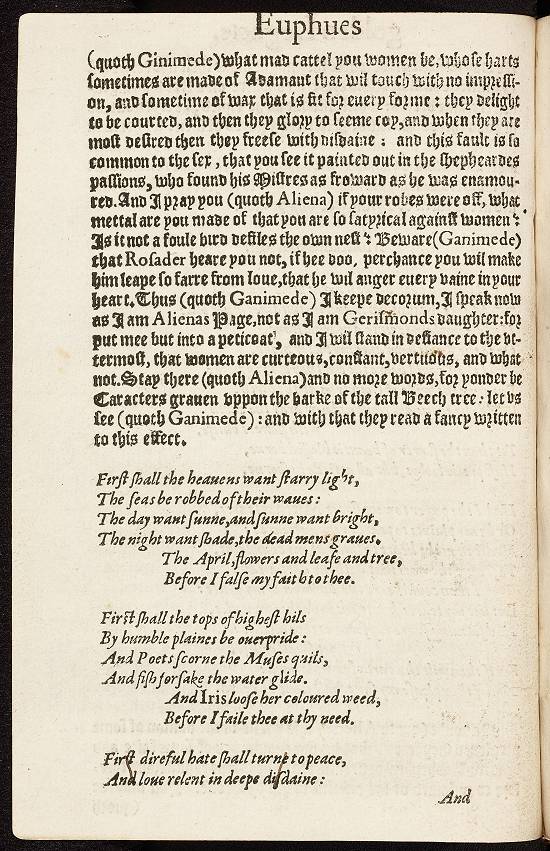 Euphues
(quoth Ginimede) what mad cattel you women be, whose harts
sometimes are made of Adamant that wil touch with no impressi-
on, and sometime of wax that is fit for euery forme: they delight
to be courted, and then they glory to seeme coy, and when they are
most desired then they freese with disdaine: and this fault is so
common to the sex, that you see it painted out in the shepheardes
passions, who found his Mistres as froward as he was enamou-
red. And I pray you (quoth Aliena) if your robes were off, what
mettal are you made of that you are so satyrical against women?
Is it not a foule bird defiles the own nest? Beware (Ganimede)
that Rosader heare you not, if hee doo, perchance you wil make
him leape so farre from loue, that he wil anger euery vaine in your
heart. Thus (quoth Ganimede) I keepe decorum, I speak now
as I am Alienas Page, not as I am Gerismonds daughter: for
put mee but into a peticoat, and I wil stand in defiance to the vt-
termost, that women are curteous, constant, vertuous, and what
not. Stay there (quoth Aliena) and no more words, for yonder be
Caracters grauen vppon the barke of the tall Beech tree: let vs
see (quoth Ganimede): and with that they read a fancy written
to this effect.
First shall the heauens want starry light,
The seas be robbed of their waues:
The day want sunne, and sunne want bright,
The night want shade, the dead mens graues.
The April, flowers and leafe and tree,
Before I false my faith to thee.
First shall the tops of highest hils
By humble plaines be ouerpride:
And Poets scorne the Muses quils,
And fish forsake the water glide.
And Iris loose her coloured weed,
Before I faile thee at thy need.
First direful hate shall turne to peace,
And loue relent in deepe disdaine:
And